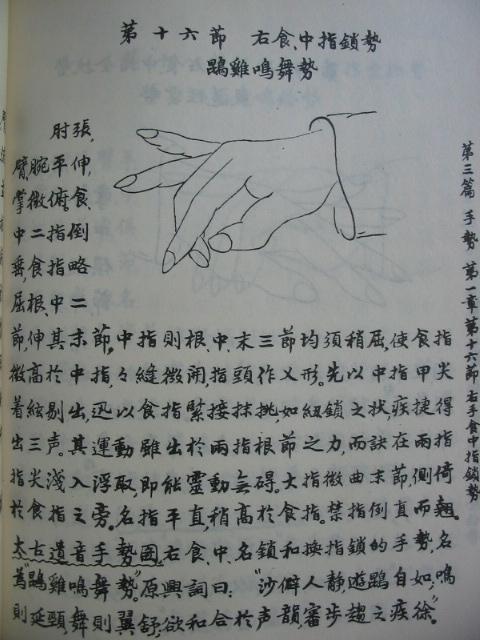 第十六節　右食、中指鎖勢
鵾雞鳴舞勢
肘張,
臂,腕平伸,
掌微俯。食、
中二指倒
垂,食指略
屈根、中二
節,伸其末節,中指則根、中、末三節均須稍屈,使食指
微高於中指,々縫微闭,指頭作乂形。先以中指甲尖
着絃剔出,迅以食指緊接抹挑,如紐鎖之狀,疾捷得
出三声。其運動雖出於兩指根節之力,而訣在兩指
指尖淺入浮取,即能靈動無碍。大指微曲末節,側倚
於食指之旁,名指平直,稍高於食指。禁指倒直而翹。
太古遺音手勢圖右食、中、名鎖和換指鎖的手勢,名
為"鵾雞鳴舞勢"。原興詞曰:"沙僻人靜,遊鵾自如,鳴
則延頸,舞則翼舒,欲和合於声韻,審步趨之疾徐"。
第三篇 手勢 第一章第十六節右手食中指鎖勢